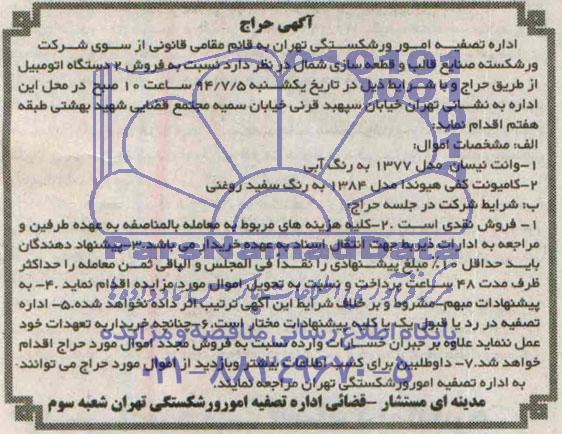 آگهی حراج
اداره تصفیه امور ورشکستگی تهران به قائم مقامی قانونی از سوی شرکت
ورشکسته صنایع قالب و قطعه سازی شمال در نظر دارد نسبت به فروش ۲ دستگاه اتومبیل
از طریق حراج و با شرایط ذیل در تاریخ یکشنبه ۹۴/۷/۵ ساعت ۱۰ صبح در محل این
اداره به نشانی تهران خیابان سپهبد قرنی خیابان سمیه مجتمع قضایی شهید بهشتی طبقه
هفتم اقدام نماید:
الف: مشخصات اموال:
۱-وانت نیسان مدل ۱۳۷۷ به رنگ آبی
۲-کامیونت کفی هیوندا مدل ۱۳۸۴ به رنگ سفید روغنی
ب: شرایط شرکت در جلسه حراج:
۱- فروش نقدی است .۲-کلیه هزینه های مربوط به معامله بالمناصفه به عهده طرفین و
مراجعه به ادارات ذیربط جهت انتقال اسناد به عهده خریدار می باشد.۳-پیشنهاد دهندگان
باید حداقل ۱۰٪ مبلغ پیشنهادی را نقدا فی المجلس و الباقی ثمن معامله را حداکثر
ظرف مدت ۴۸ ساعت پرداخت و نسبت به تحویل اموال مورد مزایده اقدام نماید .۴- به
پیشنهادات مبهم-مشروط و بر خلاف شرایط این آگهی ترتیب اثر داده نخواهد شد.۵- اداره
تصفیه در رد یا قبول یک یا کلیه پیشنهادات مختار است.۶-چنانچه خریدار به تعهدات خود
عمل ننماید علاوه بر جبران خسارات وارده نسبت به فروش مجدد اموال مورد حراج اقدام
خواهد شد.۷- داوطلبین برای کسب اطلاعات بیشتر وبازدید از اموال مورد حراج می توانند
به اداره تصفیه امورورشکستگی تهران مراجعه نمایند.
مدینه ای مستشار -قضائی اداره تصفیه امورورشکستگی تهران شعبه سوم
ParsNamadData
پایگاه اطلاع رسانی مناقصه و مزایده
۰۲۱-۸۸۳۴۹۶۷۰-۵